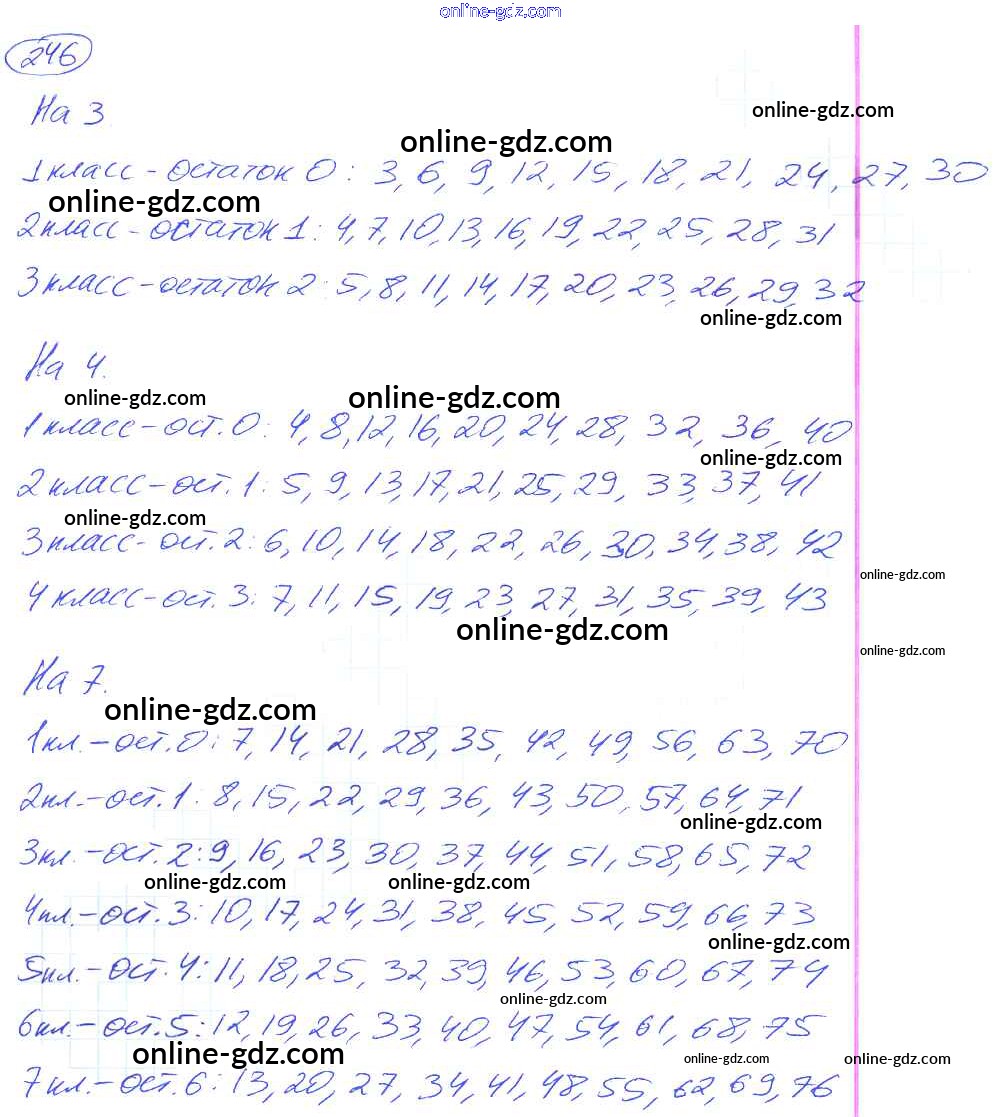 online-gdz.com
246
На 3
online-gdz.com
online-gdz.com
1 класс - остаток 0: 3, 6, 9, 12, 15, 18, 21, 24, 27, 30
online-gdz.com
2 класс - остаток 1: 4, 7, 10, 13, 16, 19, 22, 25, 28, 31
3 класс - остаток 2: 5, 8, 11, 14, 17, 20, 23, 26, 29, 32
online-gdz.com
На 4.
online-gdz.com
online-gdz.com
1 класс - ост. 0: 4, 8, 12, 16, 20, 24, 28, 32, 36, 40
online-gdz.com
2 класс - ост. 1: 5, 9, 13, 17, 21, 25, 29, 33, 37, 41
online-gdz.com
3 класс - ост. 2: 6, 10, 14, 18, 22, 26, 30, 34, 38, 42
online-gdz.com
4 класс - ост. 3: 7, 11, 15, 19, 23, 27, 31, 35, 39, 43
online-gdz.com
online-gdz.com
На 7.
online-gdz.com
1 кл. - ост. 0: 7, 14, 21, 28, 35, 42, 49, 56, 63, 70
2 кл. - ост. 1: 8, 15, 22, 29, 36, 43, 50, 57, 64, 71
online-gdz.com
3 кл. - ост. 2: 9, 16, 23, 30, 37, 44, 51, 58, 65, 72
online-gdz.com
online-gdz.com
4 кл. - ост. 3: 10, 17, 24, 31, 38, 45, 52, 59, 66, 73
online-gdz.com
5 кл. - ост. 4: 11, 18, 25, 32, 39, 46, 53, 60, 67, 74
online-gdz.com
6 кл. - ост. 5: 12, 19, 26, 33, 40, 47, 54, 61, 68, 75
online-gdz.com
online-gdz.com
online-gdz.com
7 кл. - ост. 6: 13, 20, 27, 34, 41, 48, 55, 62, 69, 76